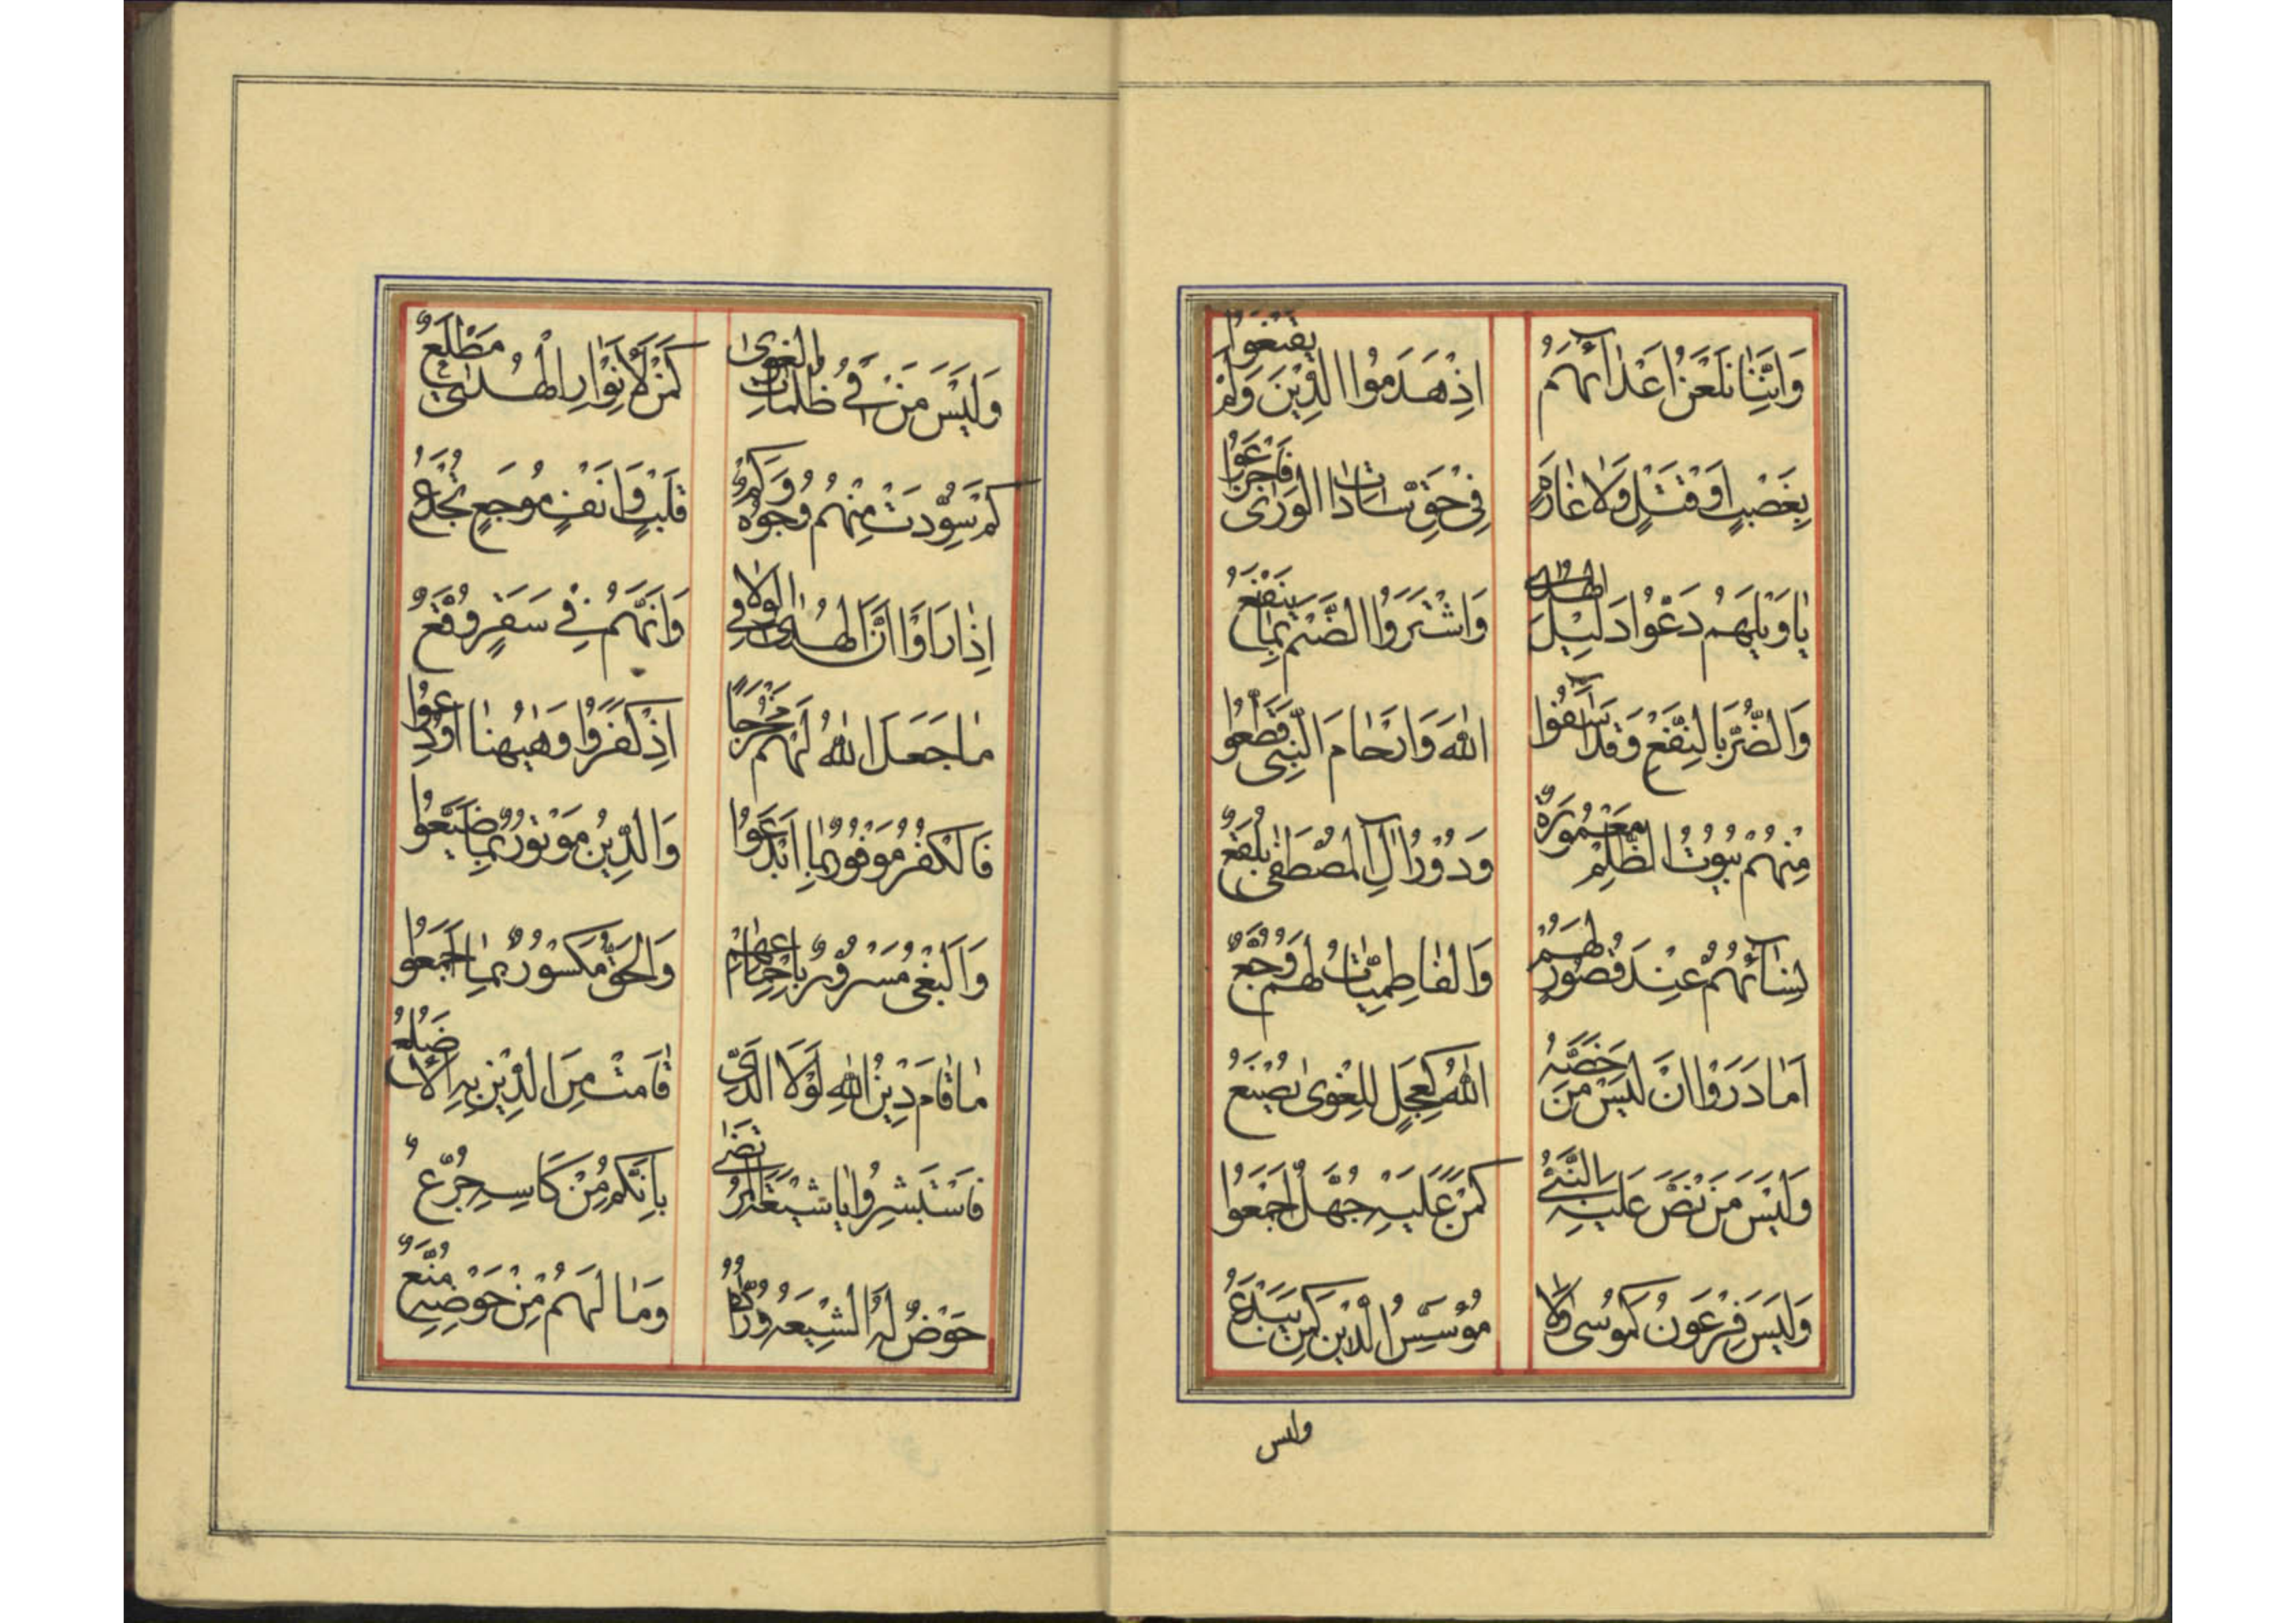 وَاِنَّنٰا نَلْعَنُ اَعْدٰآئَهُمْ اِذْ هَدَمُوا الدّٖينَ وَلَمْ يَقْنَعُوا
بِغَصْبٍ اَوْ قَتْلٍ وَلٰا غٰارَةٍ فِى حَقِّ سٰادٰاتِ الْوَرىٰ فَاجْرَعُوا
يٰا وَيْلَهُمْ دَعْوا دَلٖيلَ الهُدىٰ وَاشْتَرَوُا الضَّيْمَ بِمٰا يَنْفَعُ
وَالضُّرَّ بِالنَّفْعِ وَقَدْ آسَفُوا اللّٰهَ وَارْحٰامَ النَّبِى قَطَّعُوا
مِنْهُمْ بُيُوتُ الظُّلْمِ مَعْمُورَةٌ وَدُوْرُ اٰلِ المُصْطَفٰى بَلْقَعُ
نِسٰآئُهُمْ عِنْدَ قُصُورٍ لَهُمْ وَالْفٰاطِمِيّٰاتُ لَهُمْ وُجَّعٌ
اَمٰا دَرَوْا اَنْ لَيْسَ مَنْ خَصَّهُ اللّٰهُ كَعِجْلٍ لِلْغِوىٰ يُصْنَعُ
وَلَيْسَ مَنْ نَصَّ عَلَيْهِ النَّبىُّ كَمَنْ عَلَيْهِ جُهَّلٌ اَجْمَعُوا
وَلَيْسَ فِرْعَوْنُ كَمُوسٰى وَلٰا مُؤسِّسُ الدّٖينِ كَمَنْ يَبْدَعُ
وليس
وَلَيْسَ مَنْ فٖى ظُلُمٰاتِ الْغَوىٰ كَمَنْ لِاَنْوٰارِ الْهُدىٰ مَطْلَعٌ
كَمْ سُوِّدَتْ مِنْهُمْ وُجُوهٌ وَكَمْ قَلْبٍ وَاَنْفٍ مُوجَعٍ يُجْدَعُ
اِذٰا رَاَوْا اَنَّ الهُدىٰ فِى الوِلٰا وَاَنَّهُمْ فِى سَقَرٍ وُقَّعٌ
مٰا جَعَلَ اللّٰهُ لَهُمْ مَخْرَجًا اِذْ كَفَرُوا وَهٰيهُنٰا اُوْدِعُوا
فَالْكُفْرُ مَوْفُورٌ بِمٰا اَبْدَعُوا وَالدّٖينُ مَوْتُورٌ بِمٰا ضَيَّعُوا
وَالْبَغْىُ مَسْرُورٌ بِاِجْمٰاعِهِمْ وَالْحَقُّ مَكْسُورٌ بِمٰا اَجْمَعُوا
مٰا قٰامَ دٖينُ اللّٰهِ لَوْلَا الَّذٖى قٰامَتْ مِنَ الدّٖينِ بِهِ الْاَضْلُعُ
فَاسْتَبْشِرُوا يٰا شٖيعَةَ الْمُرْتَضىٰ بِاَنَّكُمْ مِنْ كَاْسِهِ جُرَّعٌ
حَوْضٌ لَهُ الشّٖيعَةُ وُرّٰادُهُ وَمٰا لَهُمْ مِنْ حَوْضِهِ مُنَّعٌ